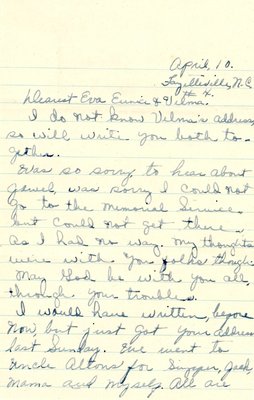 April 10.
Fayetteville, N.C.
Rt 4.
Dearest Eva Eunice & Velma.
I do not know Velma's address
so will write you both to-
gether.
Was so sorry to hear about
Jewel, was sorry I could not
go to the Memorial Service
but could not get there
as I had no way. My thoughts
were with you folks though.
May God be with you all
through your troubles.
I would have written before
now, but just got your address
last Sunday. We went to
Uncle Altons for Supper, Jack,
Mama and myself. All are